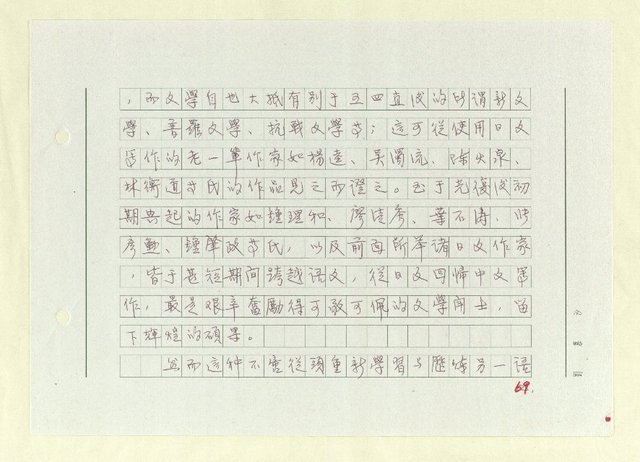 ，而文學自也大抵有别于五四直後的所謂新文
學、普羅文學、抗戰文學等；這可從使用日文
寫作的老一輩作家如楊逵、吳濁流、陳火泉、
林衡道等氏的作品見之而證之。至于光復後初
期興起的作家如鍾理和、廖清秀、葉石濤、
彥勳、鍾肇政等氏，以及前面所举諸日文作家
，皆于甚短期间跨越语文，從日文回歸中文寫
作，最是艰辛奮勵得可敬可佩的文學鬥士，留
下輝煌的碩果。
然而這种不啻從頭重新學習与歷練另一语
69.